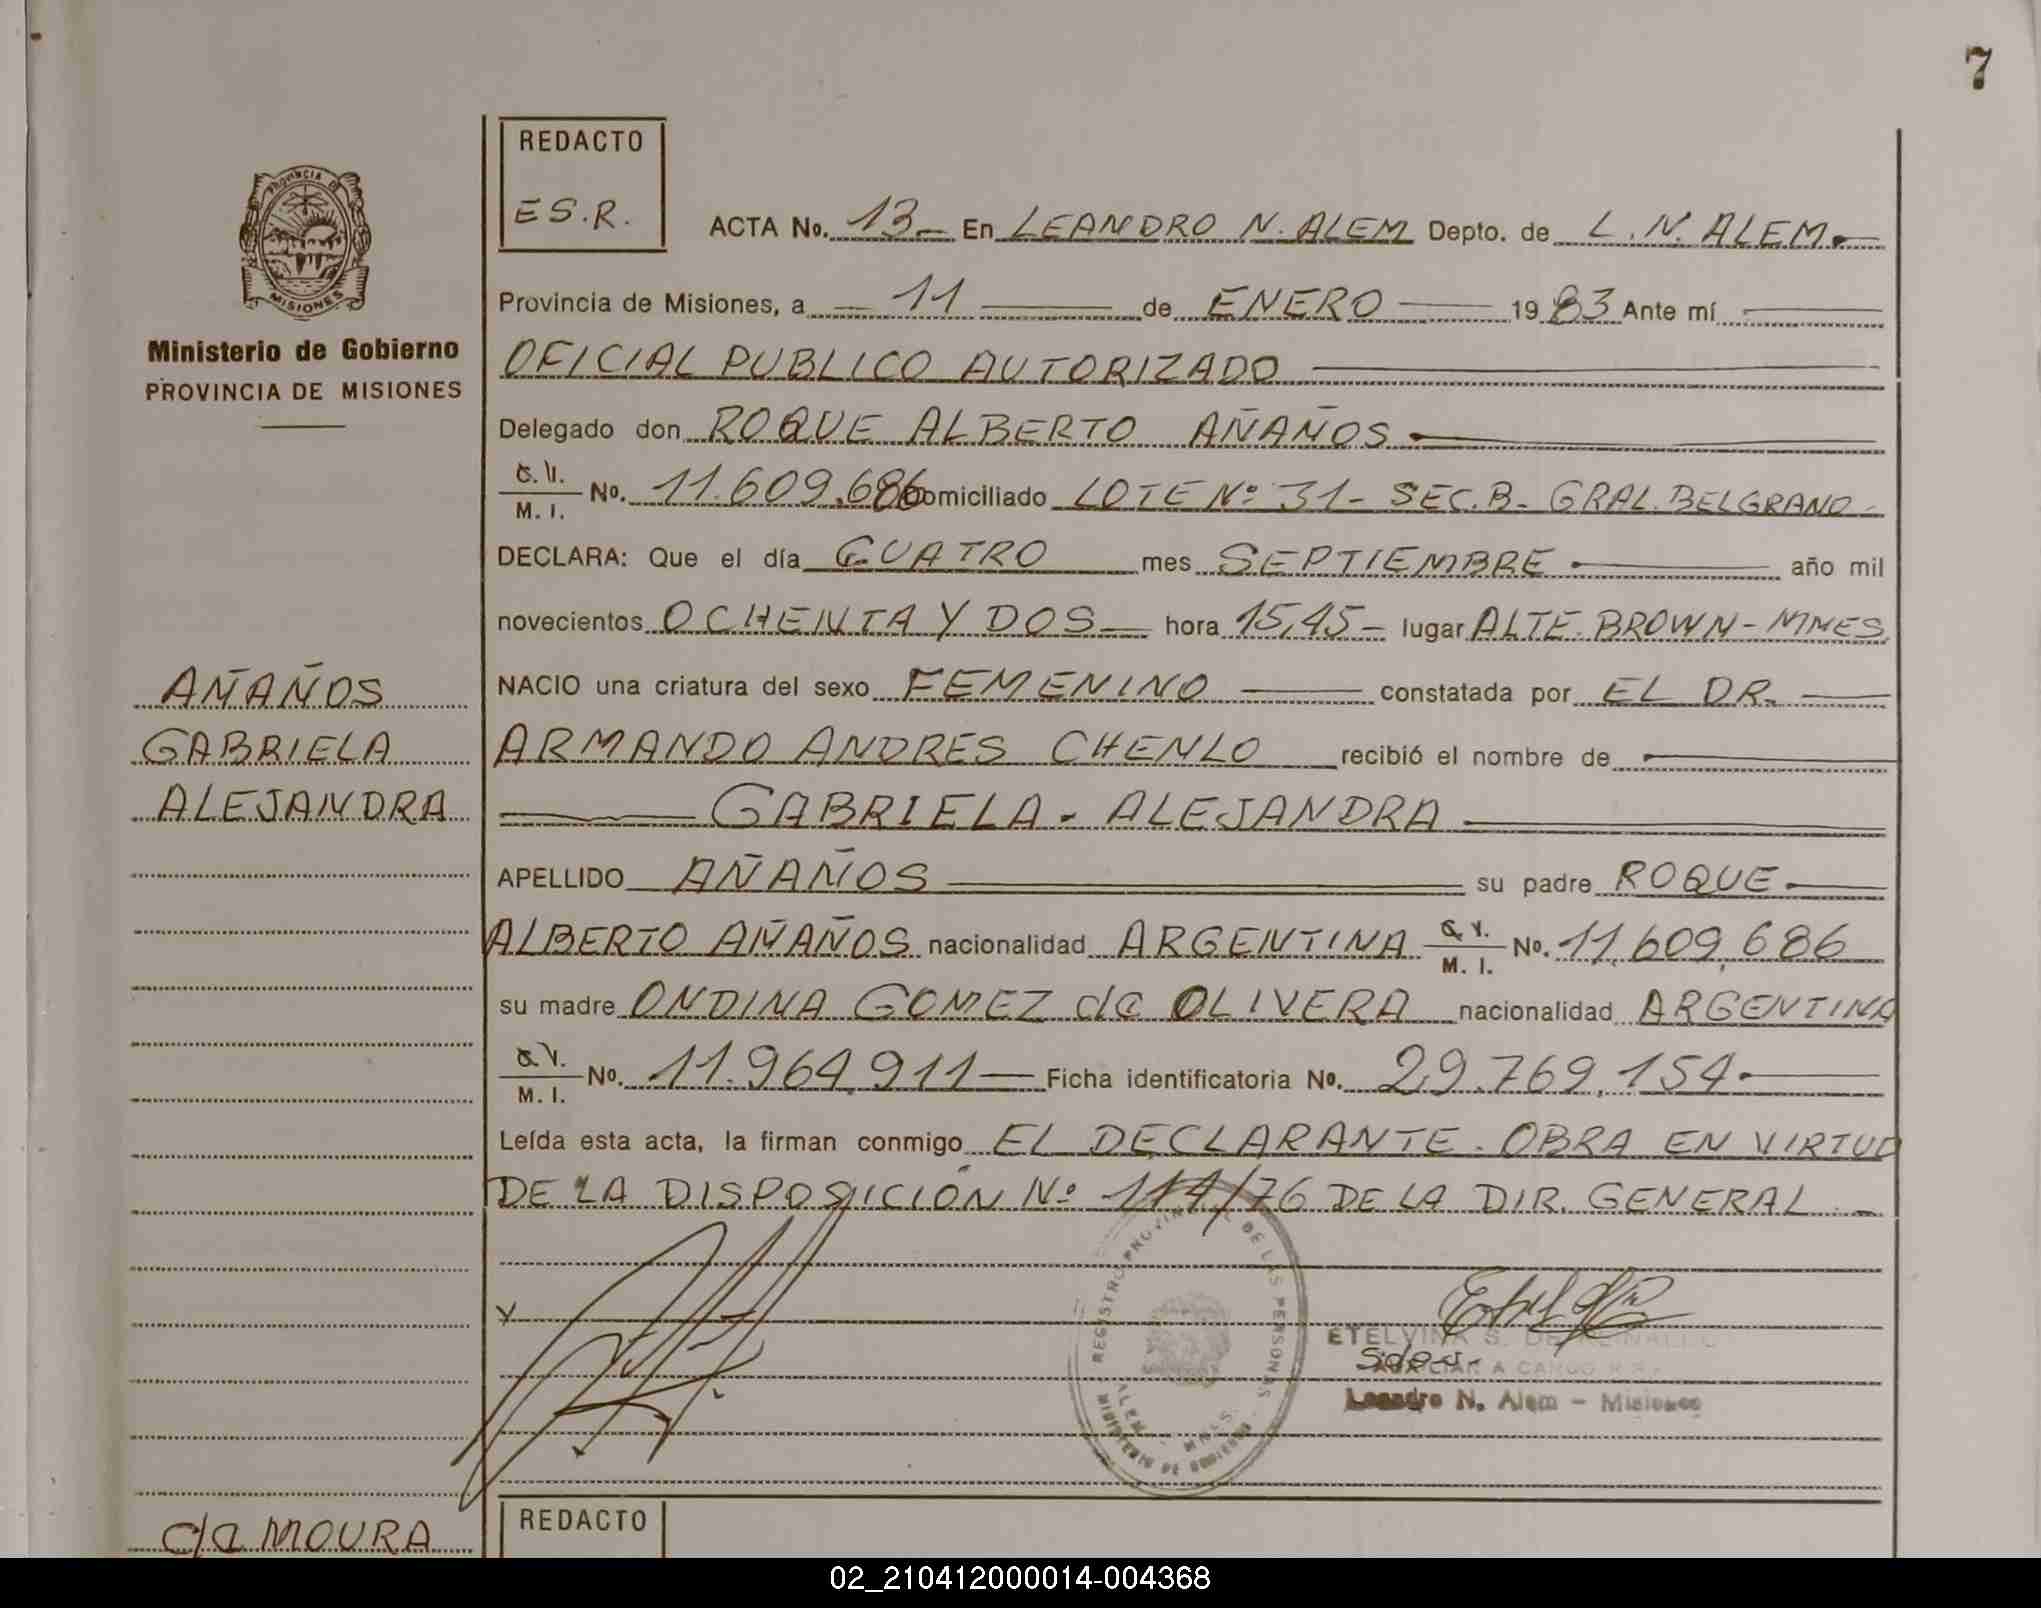 7
REDACTO
E.S.R.
PROVINCIA DE
MISIONES
Ministerio de Gobierno
PROVINCIA DE MISIONES
ACTA No. 13 En LEANDRO N. ALEM Depto. de L. N. ALEM.
Provincia de Misiones, a 11 de ENERO 1983 Ante mí
OFICIAL PUBLICO AUTORIZADO
Delegado don ROQUE ALBERTO AÑAÑOS
C. I. / M. I. No. 11.609.686 Domiciliado LOTE Nº 31- SEC. B- GRAL. BELGRANO-
DECLARA: Que el día CUATRO mes SEPTIEMBRE año mil
novecientos OCHENTA Y DOS hora 15,45 lugar ALTE. BROWN - MNES
NACIO una criatura del sexo FEMENINO constatada por EL DR.
ARMANDO ANDRES CHENLO recibió el nombre de
GABRIELA - ALEJANDRA
APELLIDO AÑAÑOS su padre ROQUE
ALBERTO AÑAÑOS nacionalidad ARGENTINA C. I. / M. I. No. 11.609.686
su madre ONDINA GOMEZ da OLIVERA nacionalidad ARGENTINA
C. I. / M. I. No. 11.964.911 Ficha identificatoria No. 29.769.154
Leída esta acta, la firman conmigo EL DECLARANTE. OBRA EN VIRTUD
DE LA DISPOSICIÓN Nº 114/76 DE LA DIR. GENERAL
AÑAÑOS
GABRIELA
ALEJANDRA
REGISTRO PROVINCIAL DE LAS PERSONAS
MINISTERIO DE GOBIERNO
ALEM - MNES.
ETELVINA S. DE
AUXILIAR A CARGO
Leandro N. Alem - Misiones
da MOURA
REDACTO
02_210412000014-004368